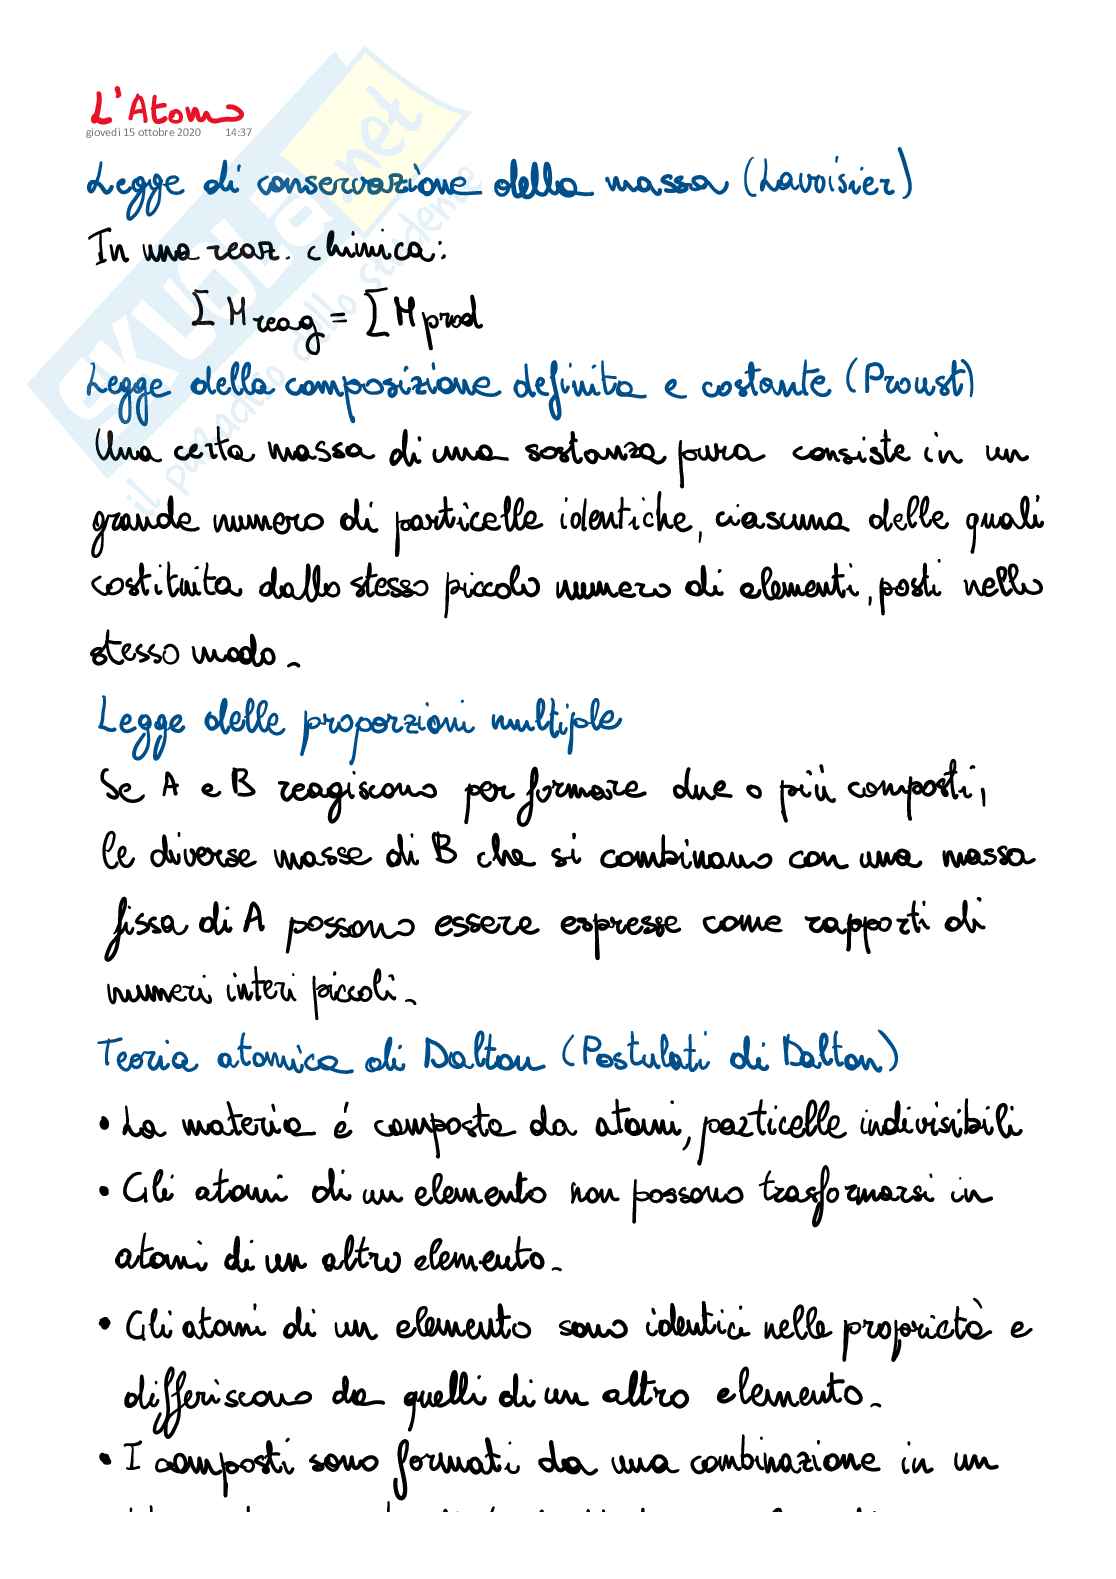 L'Atomo
giovedì 15 ottobre 2020 14:37
Legge di conservazione della massa (Lavoisier)
In una reaz. chimica:
Σ M reag = Σ M prod
Legge della composizione definita e costante (Proust)
Una certa massa di una sostanza pura consiste in un
grande numero di particelle identiche, ciascuna delle quali
costituita dallo stesso piccolo numero di elementi, posti nello
stesso modo.
Legge delle proporzioni multiple
Se A e B reagiscono per formare due o più composti,
le diverse masse di B che si combinano con una massa
fissa di A possono essere espresse come rapporti di
numeri interi piccoli.
Teoria atomica di Dalton (Postulati di Dalton)
• La materia é composta da atomi, particelle indivisibili
• Gli atomi di un elemento non possono trasformarsi in
atomi di un altro elemento.
• Gli atomi di un elemento sono identici nelle proprietà e
differiscono da quelli di un altro elemento.
• I composti sono formati da una combinazione in un
SKUOLA.net
il paradiso dello studente